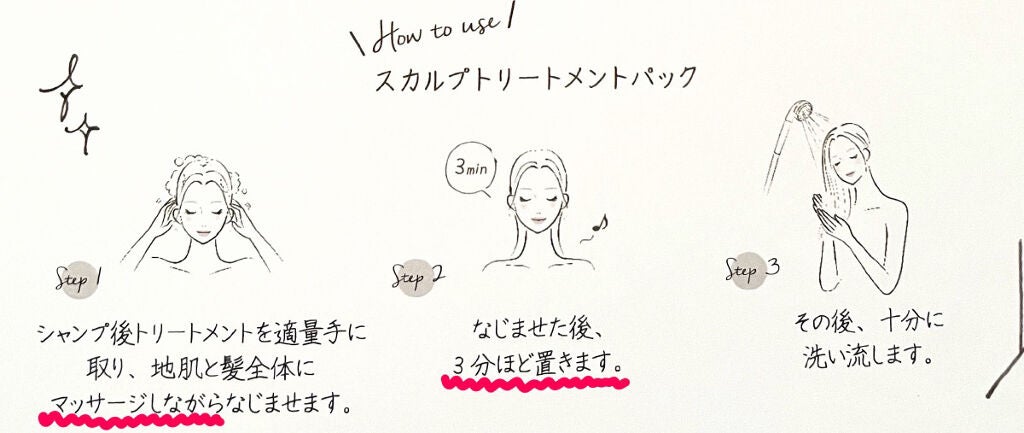 \ How to use /
スカルプトリートメントパック
Step 1
シャンプ後トリートメントを適量手に
取り、地肌と髪全体に
マッサージしながらなじませます。
3min
Step 2
なじませた後、
3分ほど置きます。
Step 3
その後、十分に
洗い流します。